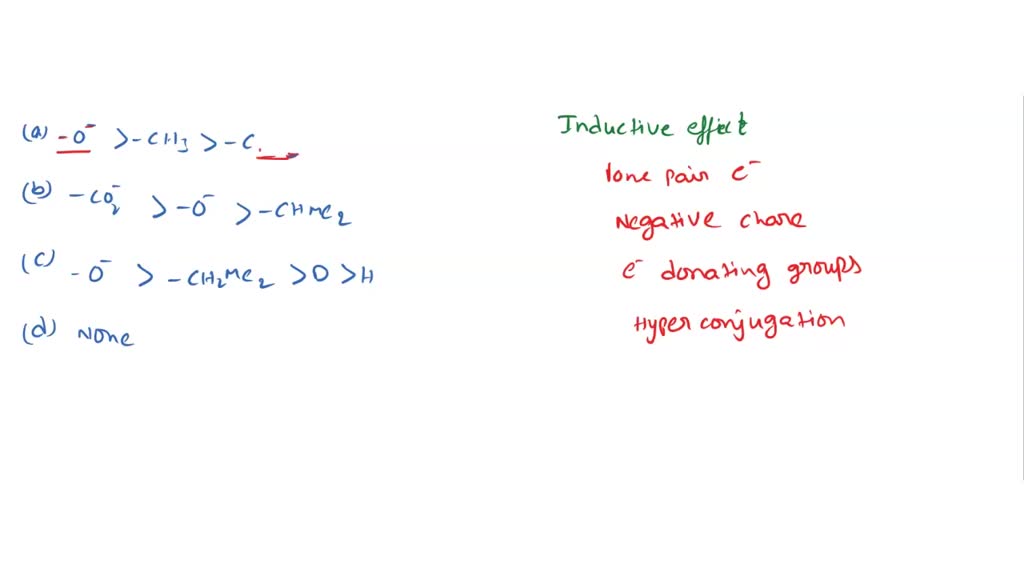 (a) -O⁻ > -CH3 > -C.
(b) -CO2⁻ > -O⁻ > -CHMe2
(c) -O⁻ > -CH2Me2 > D > H
(d) None
Inductive effect
lone pair e⁻
Negative chare
e⁻ donating groups
Hyper conjugation